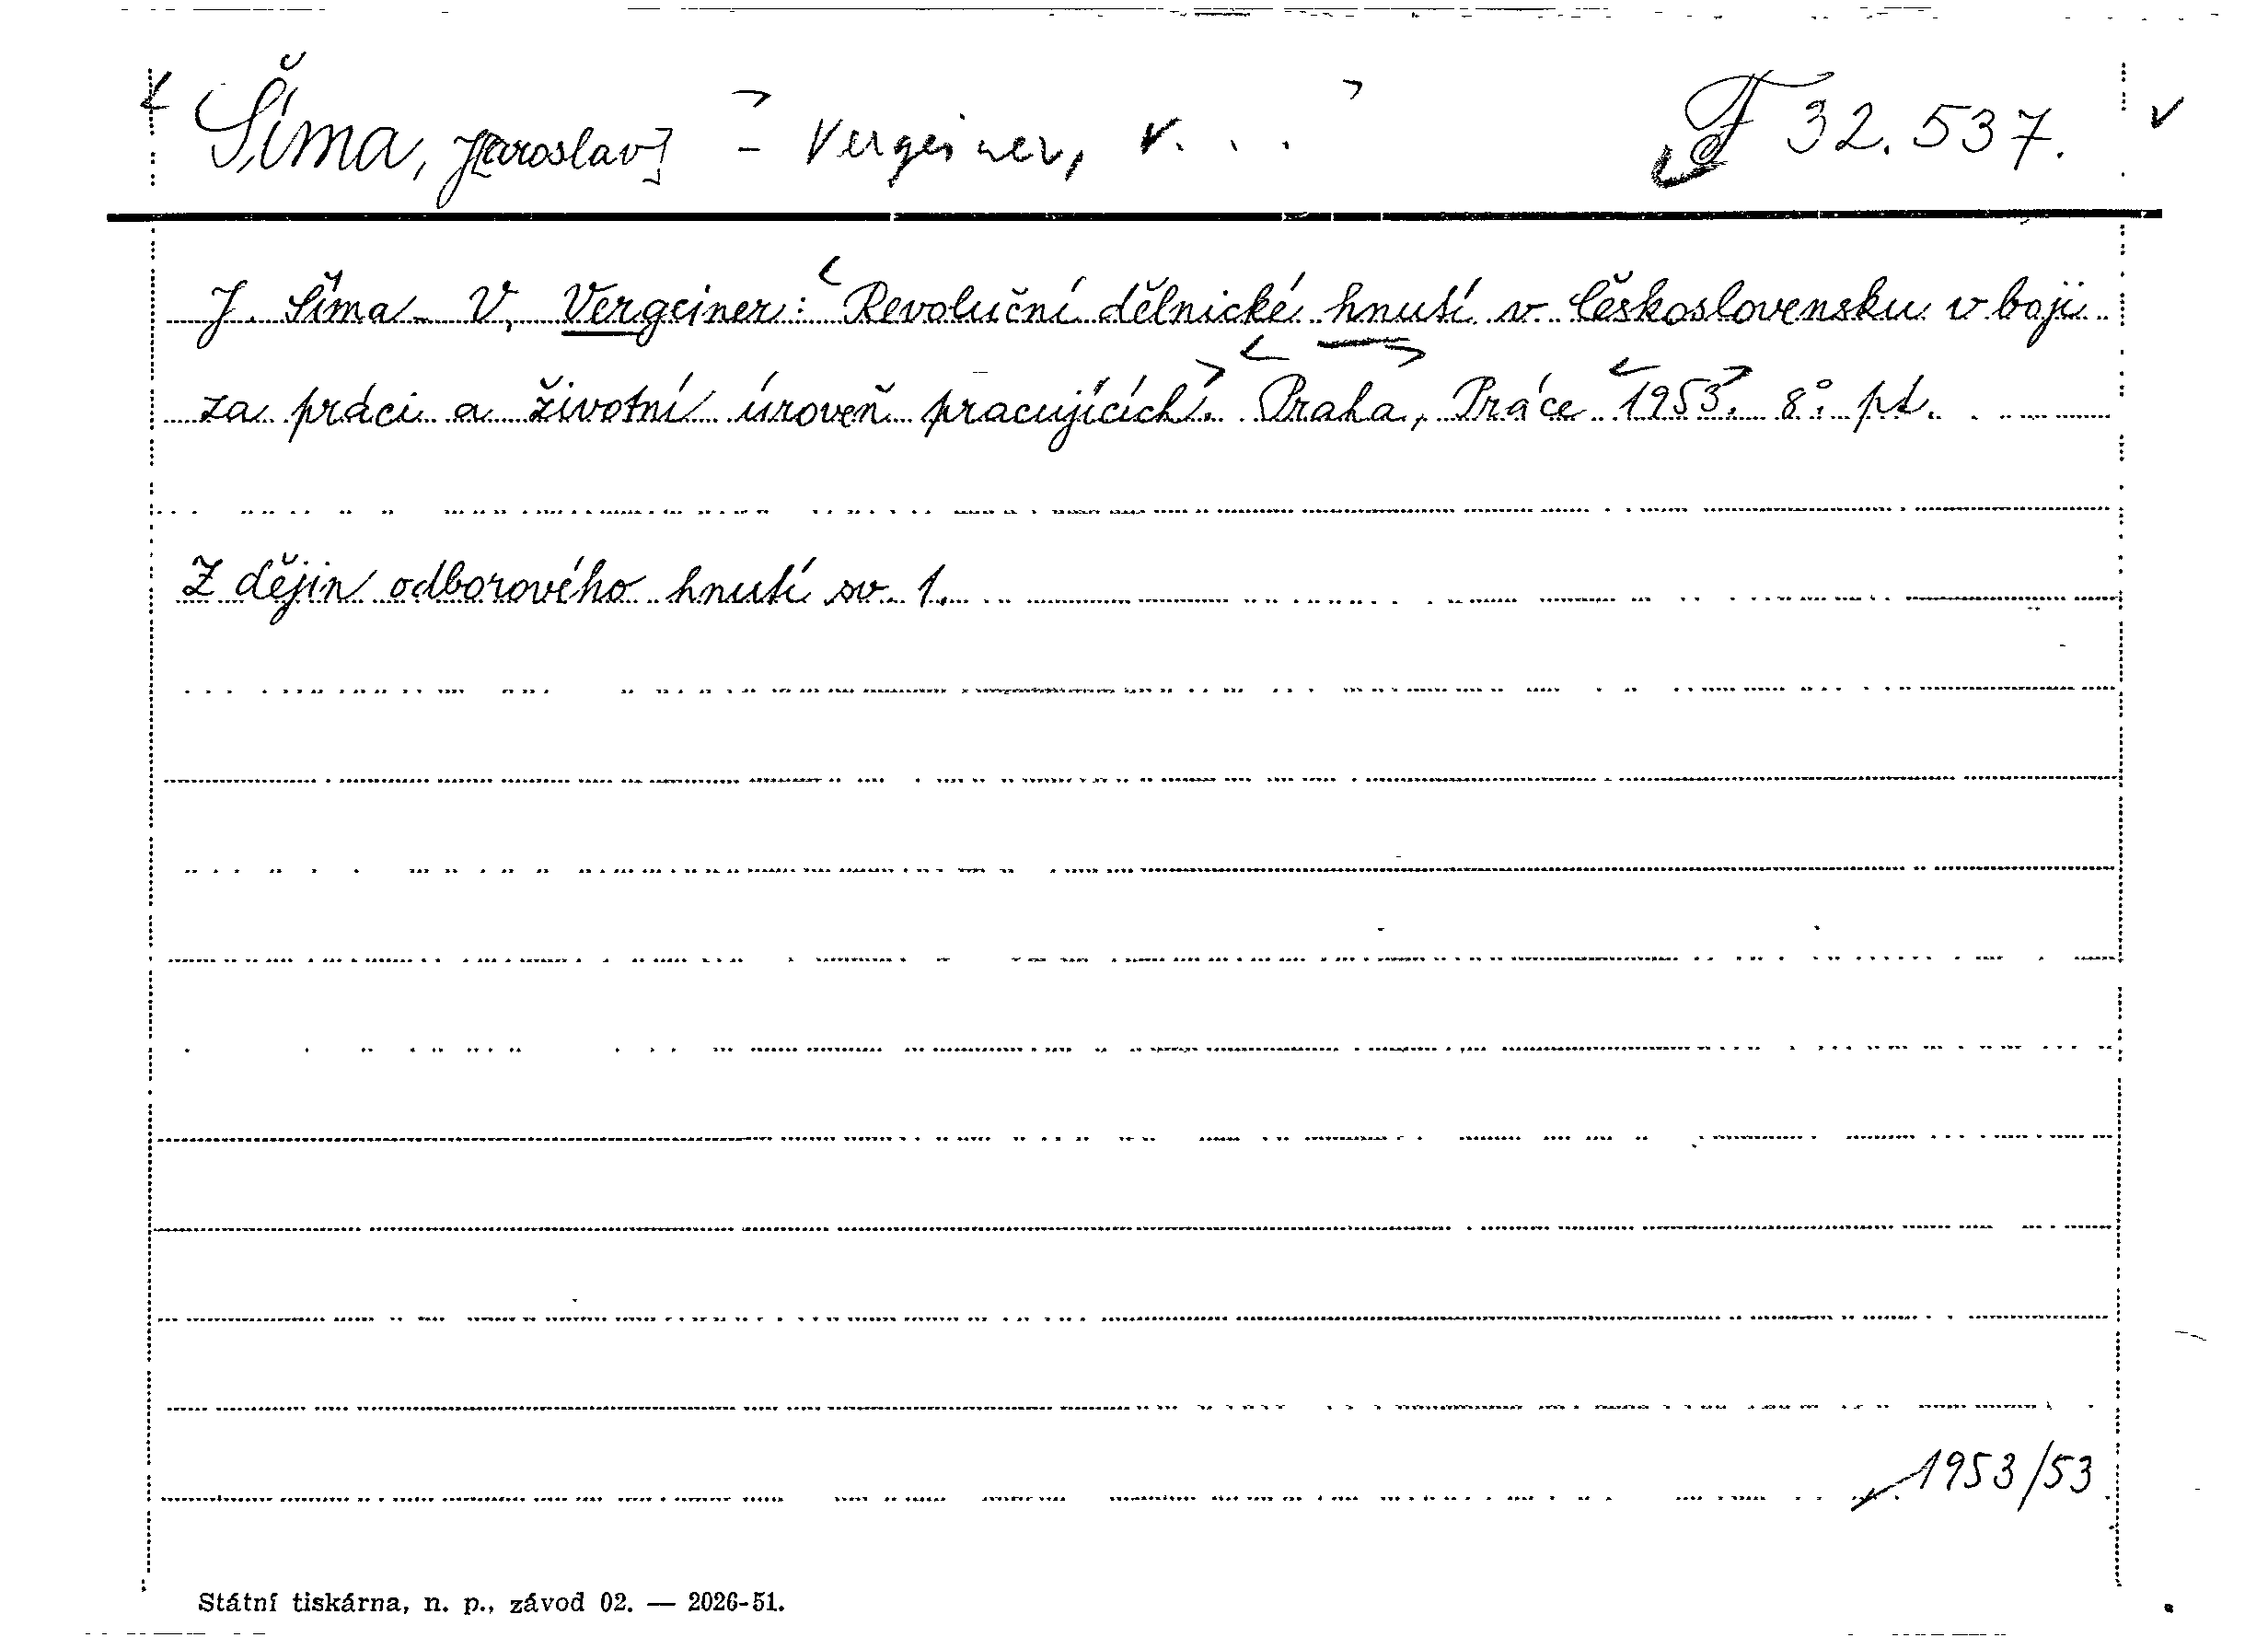 Šíma, J[aroslav] - Vergeiner, V. . . F 32.537.
J. Šíma - V. Vergeiner: Revoluční dělnické hnutí v Československu v boji
za práci a životní úroveň pracujících. Praha, Práce 1953. 8° pt.
Z dějin odborového hnutí sv. 1.
1953/53
Státní tiskárna, n. p., závod 02. — 2026-51.